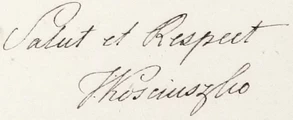 Salut et Respect
TKosciuszko